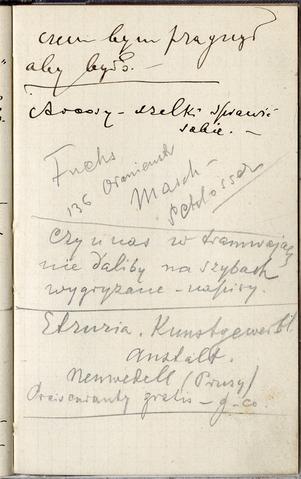 czem bym pragnął
aby było. —
szelki sprawić
sobie. —
Fuchs
136 Oranienstr
Masch-
Schlosser
Czy u nas w tramwajach
nie daliby na szybach
wygryzane – napisy.
Etruria. Kunstgewerbl.
Anstalt.
Neuwedell (Prusy)
Preiscourants gratis – g. co.